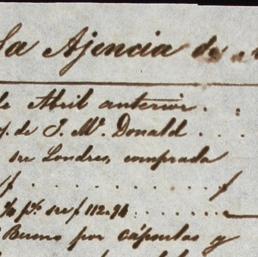 la Ajencia de
de Abril anterior.
. de J. Mc. Donald . . .
sre Londres, comprada
/f . . . . . . . . . . . f
% pr. sre f 112.94 . . . . .
Bueno por cápsulas y